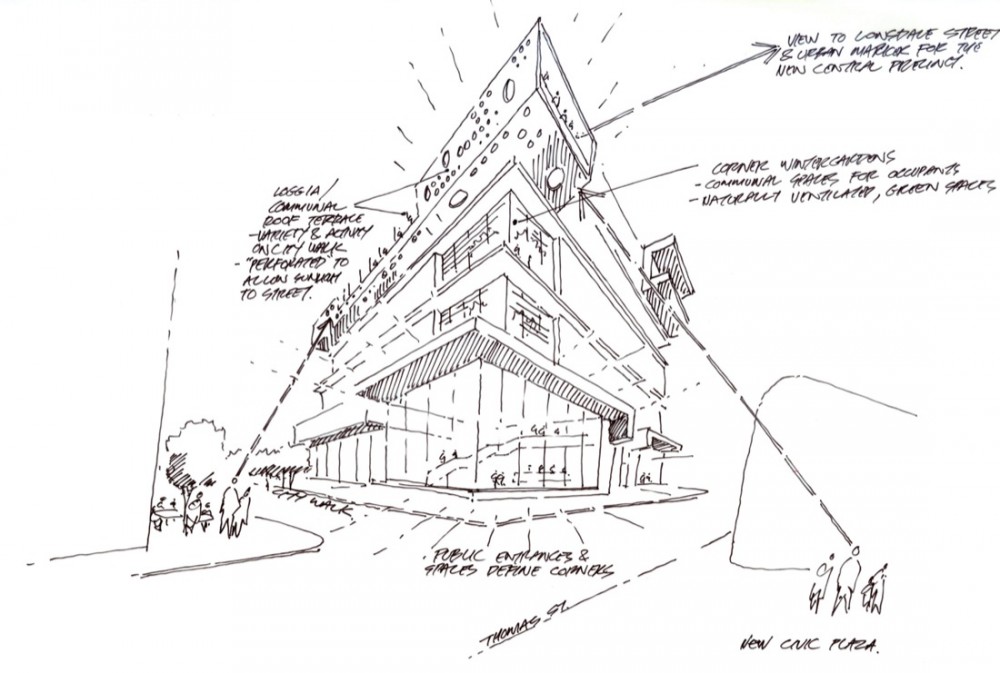 VIEW TO LONSDALE STREET
& URBAN MARKER FOR THE
NEW CENTRAL PRECINCT.
CORNER WINTERGARDENS
- COMMUNAL SPACES FOR OCCUPANTS
- NATURALLY VENTILATED, GREEN SPACES
LOGGIA/
COMMUNAL
ROOF TERRACE
- VARIETY & ACTIVITY
ON CITY WALK
- "PERFORATED" TO
ALLOW SUNLIGHT
TO STREET.
CITY WALK
PUBLIC ENTRANCES &
SPACES DEFINE CORNERS
THOMAS ST.
NEW CIVIC PLAZA.